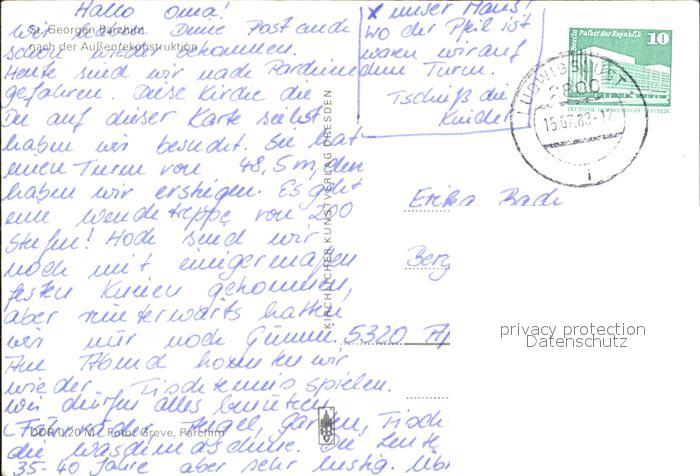 Hallo Oma!
Wir haben Deine Post auch
schon wieder bekommen.
Heute sind wir nach Parchim
gefahren. Diese Kirche die
Du auf dieser Karte siehst
haben wir besucht. Sie hat
einen Turm von 48,5 m, den
haben wir erstiegen. Es geht
eine Wendeltreppe von 200
Stufen! Hoch sind wir
noch mit einigermaßen
festen Knien gekommen,
aber runterwärts hatten
wir nur noch Gummi.
Am Abend konnten wir
wieder Tischtennis spielen.
wir dürfen alles benutzen
Garten, Tisch
die Waschmaschine. Die Leute
35-40 Jahre aber sehr lustig.
x unser Haus!
Wo der Pfeil ist
waren wir auf
dem Turm.
Tschüß die
Kinder
St. Georgen Parchim
nach der Außenrekonstruktion
DDR 0,20 M Foto: Greve, Parchim
KIRCHLICHER KUNSTVERLAG DRESDEN
Berlin Palast der Republik 10
DEUTSCHE DEMOKRATISCHE REPUBLIK
LUDWIGSLUST 2
2800
15.07.88-12
Erika Bach
Berg
5320 Ap
privacy protection
Datenschutz